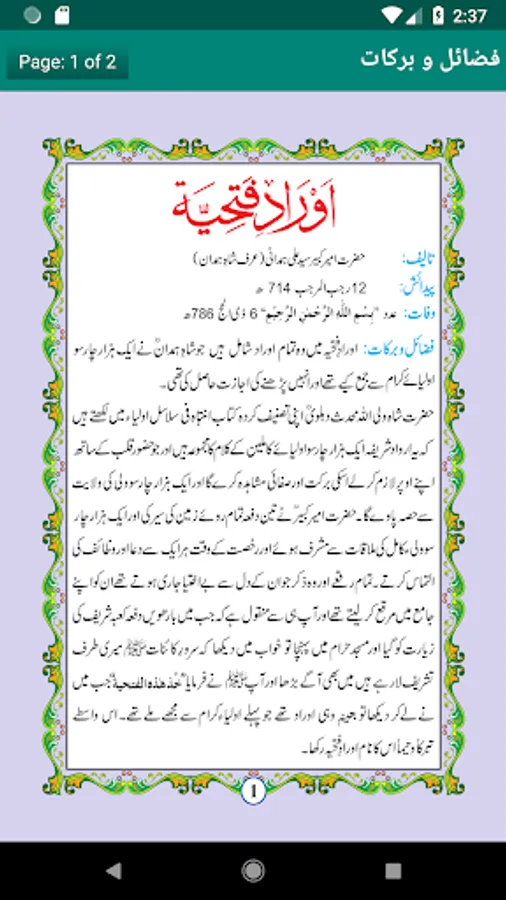 2:37
فضائل و برکات
Page: 1 of 2
اَوْرَادِ فَتَحِیَّة
تالیف: حضرت امیر کبیر سید علی ہمدانیؒ (عرف شاہِ ہمدان)
پیدائش: 12 رجب المرجب 714 ھ
وفات: عدد "بِسْمِ اللّٰهِ الرَّحْمٰنِ الرَّحِیْمِ" 6 ذی الحج 786ھ
فضائل و برکات: اورادِ فتحیہ میں وہ تمام اوراد شامل ہیں جو شاہِ ہمدانؒ نے ایک ہزار چار سو
اولیائے کرام سے جمع کیے تھے اور انہیں پڑھنے کی اجازت حاصل کی تھی۔
حضرت شاہ ولی اللہ محدث دہلویؒ اپنی تصنیف کردہ کتاب انتباہ فی سلاسل اولیاء میں لکھتے ہیں
کہ یہ ارواد شریفہ ایک ہزار چار سو اولیائے کاملین کے کلام کا مجموعہ ہیں اور جو حضور قلب کے ساتھ
اپنے اوپر لازم کر لے اسکی برکت اور صفائی مشاہدہ کرے گا اور ایک ہزار چار سو ولی کی ولایت
سے حصہ پاوے گا۔ حضرت امیر کبیرؒ نے تین دفعہ تمام روئے زمین کی سیر کی اور ایک ہزار چار
سو ولی کامل کی ملاقات سے مشرف ہوئے اور رخصت کے وقت ہر ایک سے دعا اور وظائف کی
التماس کرتے۔ تمام رقعے اور وہ ذکر جو ان کے دل سے بے اختیار جاری ہوتے تھے ان کو اپنے
جامع میں مرقع کر لیتے تھے اور آپ ہی سے منقول ہے کہ جب میں بارھویں دفعہ کعبہ شریف کی
زیارت کو گیا اور مسجد حرام میں پہنچا تو خواب میں دیکھا کہ سرور کائنات ﷺ میری طرف
تشریف لا رہے ہیں میں بھی آگے بڑھا اور آپ ﷺ نے فرمایا "خُذْ هٰذِهِ الْفَتْحِیَة" جب میں
نے لے کر دیکھا تو بعینہٖ وہی اوراد تھے جو پہلے اولیاء کرام سے مجھے ملے تھے۔ اس واسطے
تبرکاً و تیمناً اس کا نام اورادِ فتحیہ رکھا۔
1